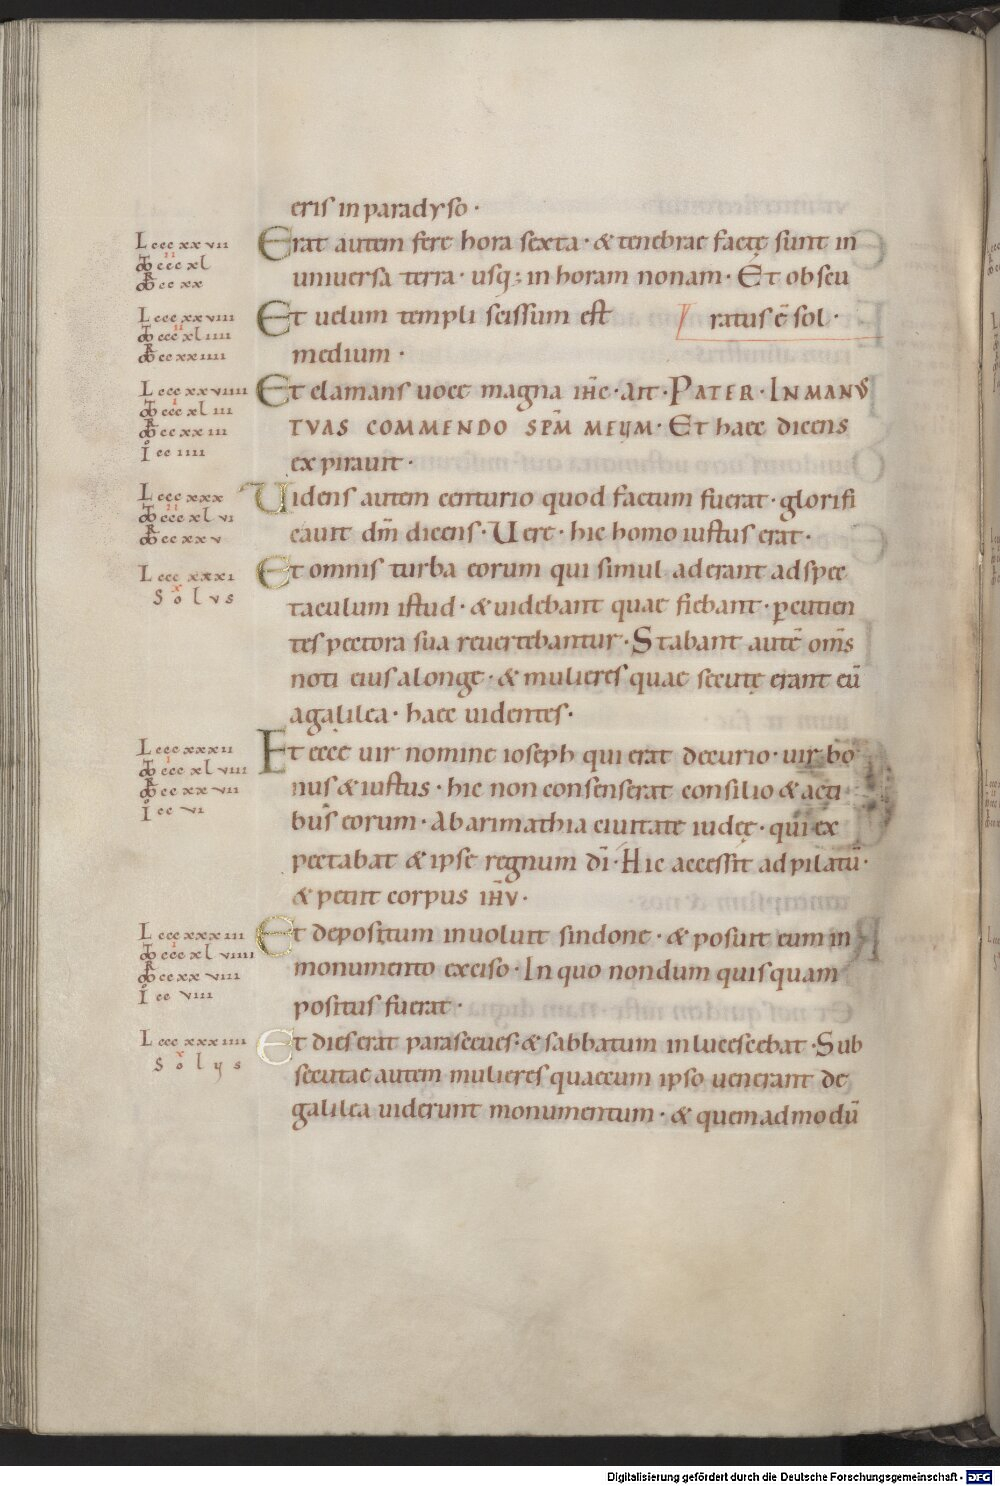 eris in paradyso ·
L ccc xx vii
Erat autem fere hora sexta · & tenebrae factę sunt in
ccc xl
cc xx
universa terra · usq; in horam nonam · Et obscu
L ccc xx viii
Et uelum templi scissum est ratus ē sol ·
ccc xl iiii
cc xx iiii
medium ·
L ccc xx viiii
Et clamans uoce magna ih̄c · ait · PATER · IN MANVS
ccc xl iii
cc xx iii
TVAS COMMENDO SPM̄ MEUM · Et haec dicens
I cc iiii
expirauit ·
L ccc xxx
Uidens autem centurio quod factum fuerat · glorifi
ccc xl vi
cc xx v
cauit dm̄ dicens · Uere · hic homo iustus erat ·
L ccc xxxi
Et omnis turba eorum qui simul aderant ad spec
S o l v s
taculum istud · & uidebant quae fiebant · percutien
tes pectora sua reuertebantur · Stabant autē om̄s
noti eius a longe · & mulieres quae secutę erant eū
a galilea · haec uidentes ·
L ccc xxxii
Et ecce uir nomine ioseph qui erat decurio · uir bo
ccc xl viii
cc xx vii
nus & iustus · hic non consenserat consilio & acti
I cc vi
bus eorum · Ab arimathia ciuitate iudeę · qui ex
pectabat & ipse regnum dī · Hic accessit ad pilatū ·
& petiit corpus ih̄v ·
L ccc xxx iii
Et depositum inuoluit sindone · & posuit eum in
ccc xl viiii
cc xx viiii
monumento exciso · In quo nondum quisquam
I cc viii
positus fuerat ·
L ccc xxx iiii
Et dies erat parasceues · & sabbatum inlucescebat · Sub
S o l y s
secutae autem mulieres quae cum ipso uenerant de
galilea uiderunt monumentum · & quemadmodū
Digitalisierung gefördert durch die Deutsche Forschungsgemeinschaft - DFG